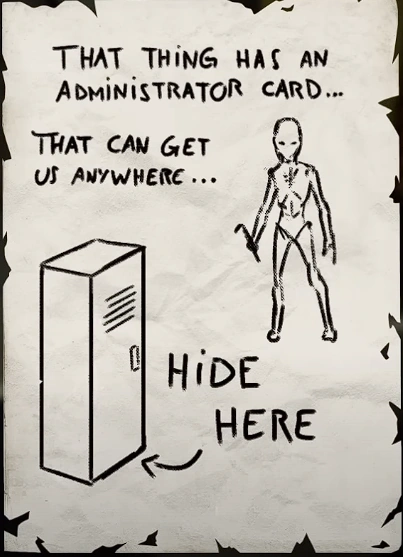 THAT THING HAS AN
ADMINISTRATOR CARD...
THAT CAN GET
US ANYWHERE...
HIDE
HERE